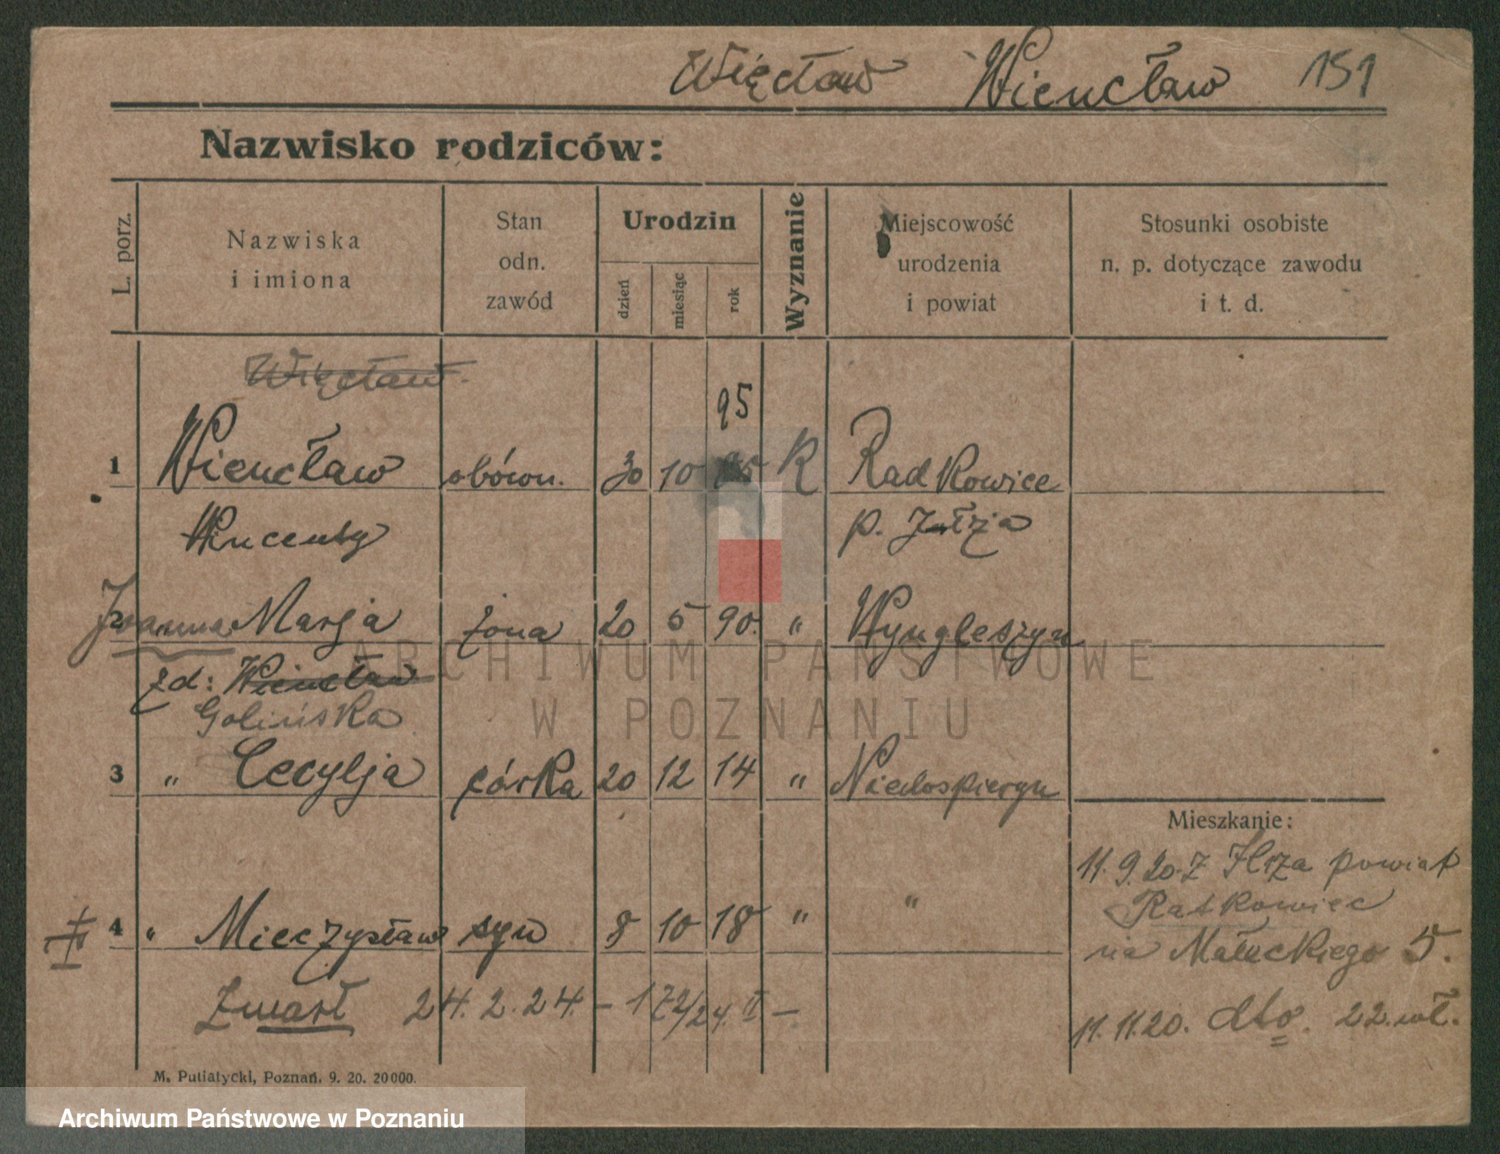 Więcław Wiencław 151
Nazwisko rodziców:
L. porz.
Nazwiska
i imiona
Stan
odn.
zawód
Urodzin
dzień
miesiąc
rok
Wyznanie
Miejscowość
urodzenia
i powiat
Stosunki osobiste
n. p. dotyczące zawodu
i t. d.
Więcław
95
1 Wiencław 30 10 R Radkowice
Wincenty p. Iłża
Joanna Marja żona 20 5 90. " Wyngleszyn
zd: Wiencław
Golińska
3 " Cecylja córka 20 12 14 " Niedospieryn
Mieszkanie:
11.9.20. z Iłża powiat
Ratkowiec
na Małeckiego 5.
4 " Mieczysław syn 8 10 18 " "
Zmarł 24.2.24. – 172/24. II –
11.11.20. dto. 22.
M. Putiatycki, Poznań. 9. 20. 20000.
ARCHIWUM PAŃSTWOWE
W POZNANIU
Archiwum Państwowe w Poznaniu